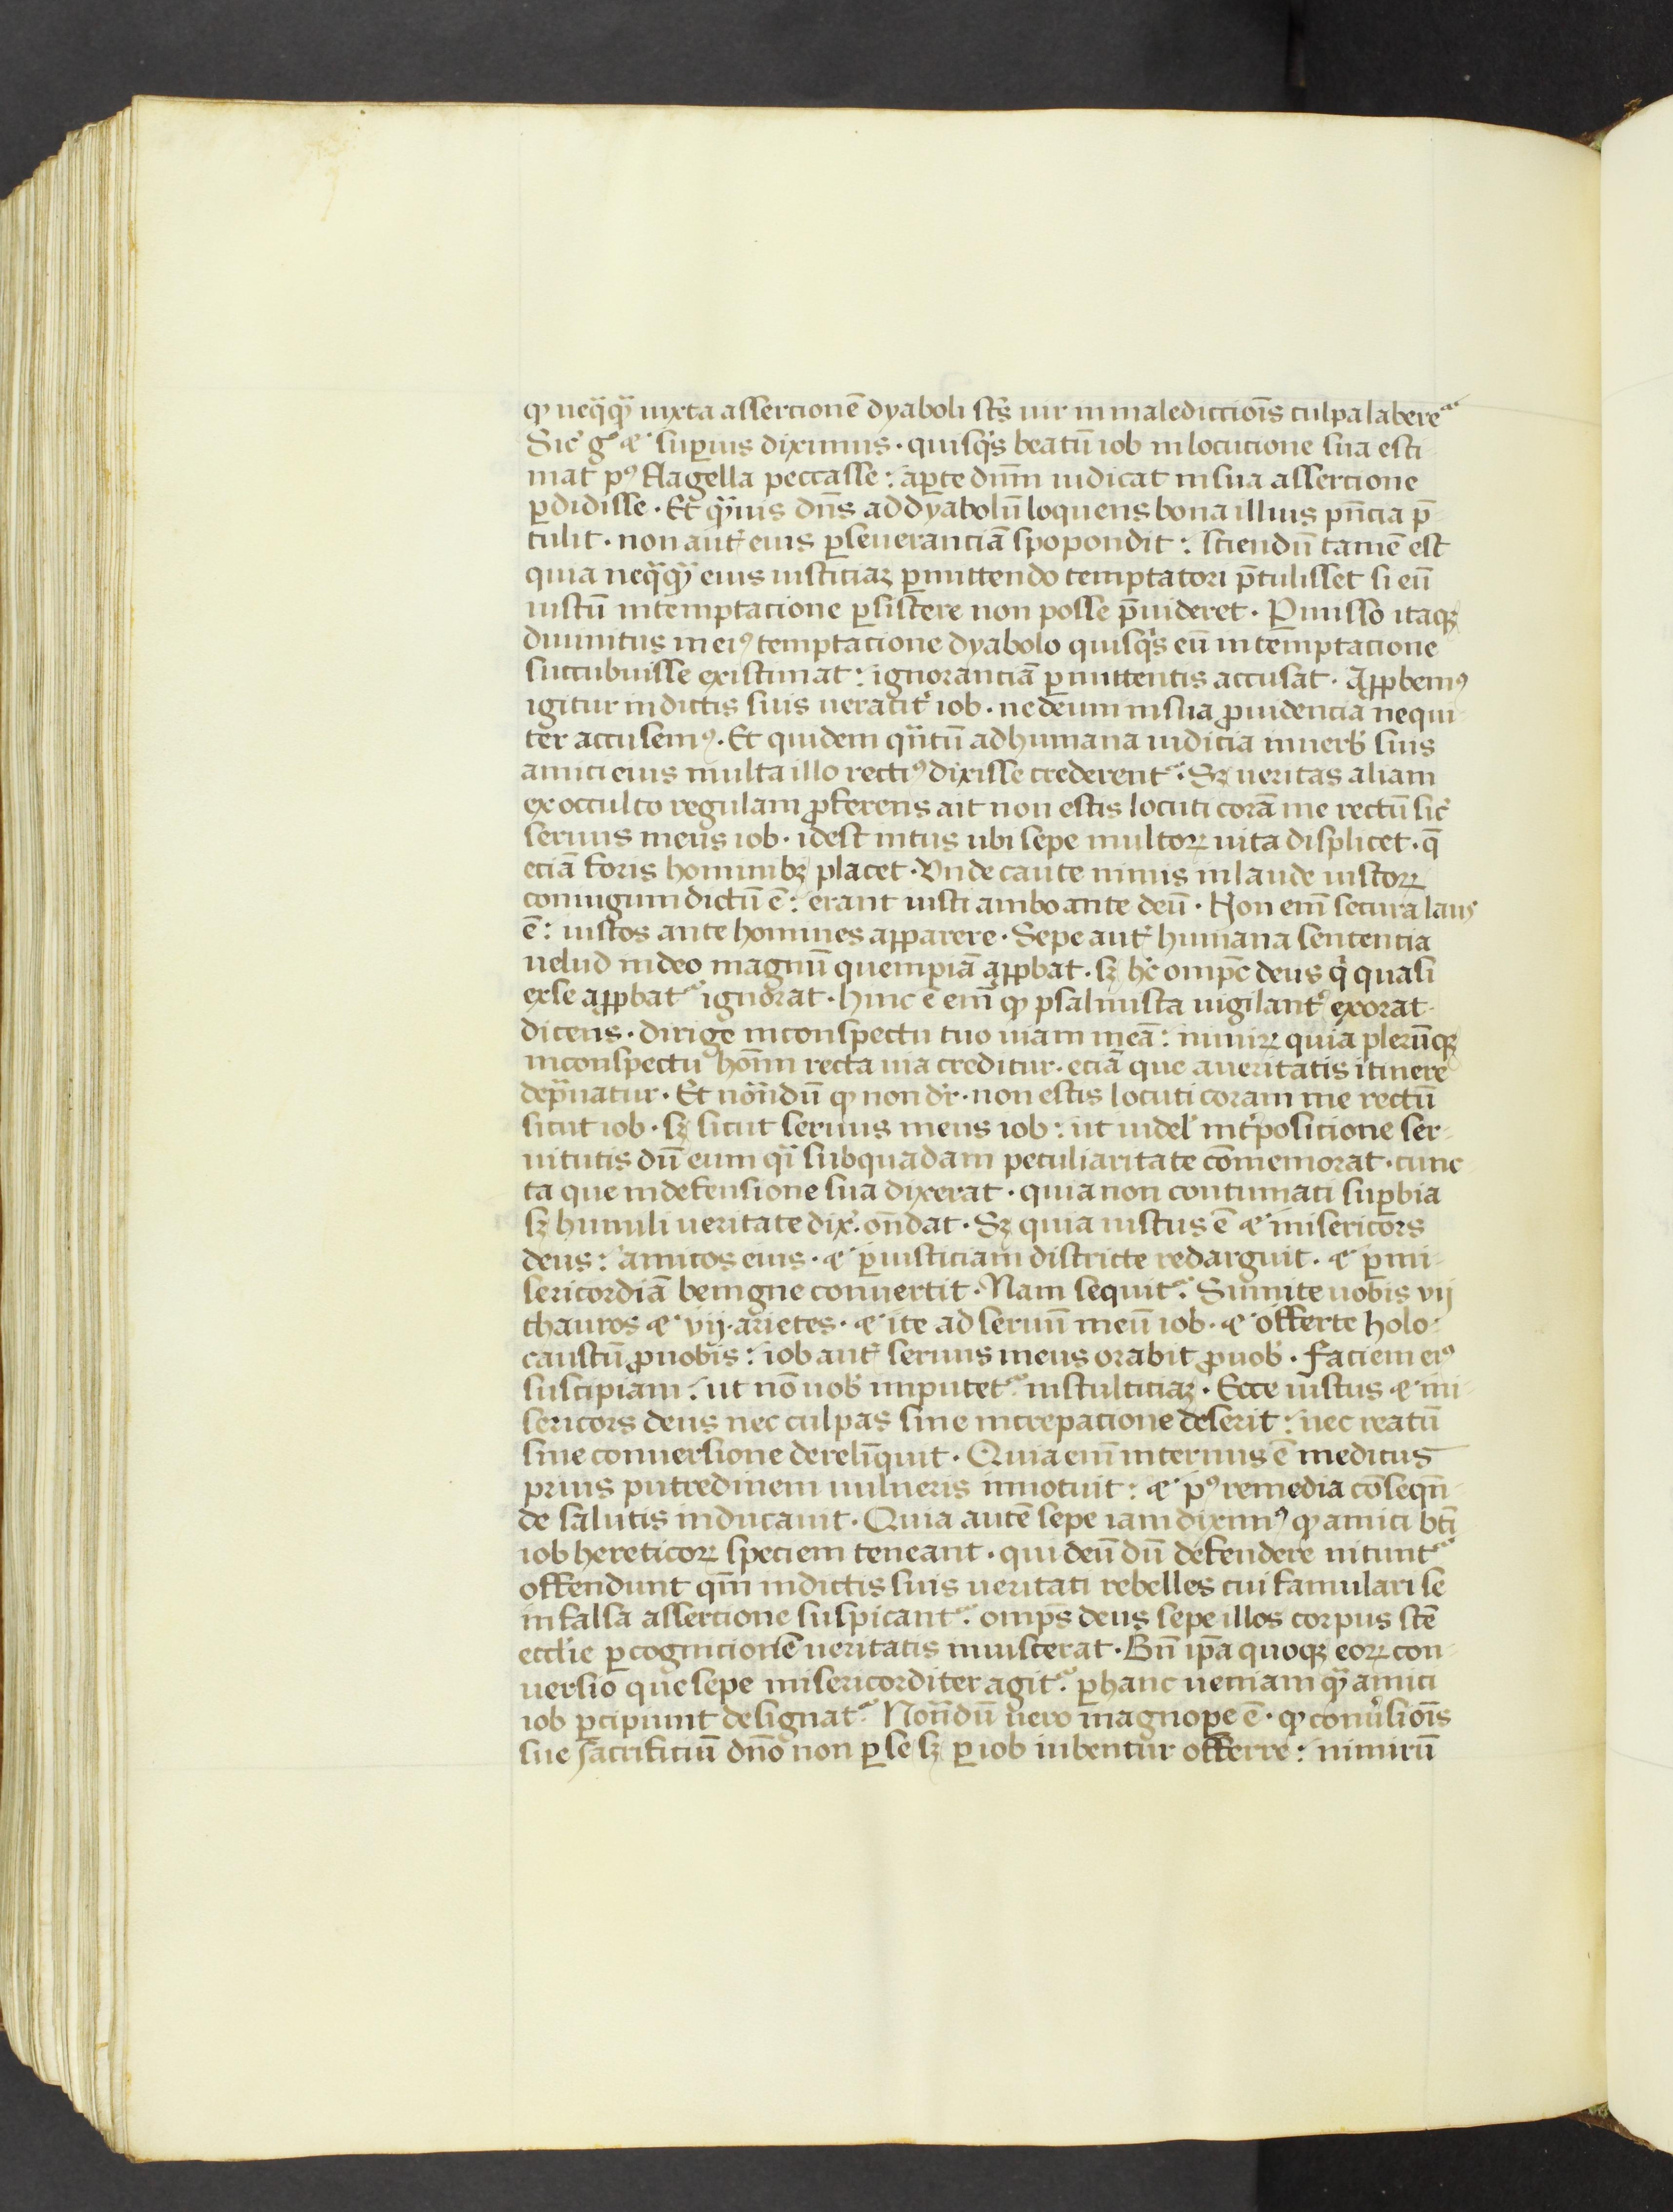 ꝙ neq̈q̈ iuxta assercionē dyaboli sc̄s uir in malediccio̅is culpa laberet᷑
Sic̓ g° ⁊ sup̲ius diximus · quisq̓s beatū iob in locucione sua esti
mat pꝰ flagella peccasse : ap̲te dn̄m iudicat in sua assercione
p̲didisse · Et q̈̄uis dn̄s ad dyabolū loquens bona illius pn̄cia p̄
tulit · non aut̄ eius p̲seueranciā spopondit : sciendū tamē est
quia neq̈q̈ eius iusticiaꝫ p̲mittendo temptatori p̄tulisset si eū
iustū in temptacione p̲sistere non posse p̄uideret · P̲misso itaqꝫ
diuinitus in eiꝰ temptacione dyabolo quisq̓s eū in temptacione
succubuisse existimat : ignoranciā p̲mittentis accusat · Aꝓpbemꝰ
igitur in dictis suis ueracit̓ iob · ne deum in sua ꝓuidencia nequi
ter accusemꝰ · Et quidem q̈ntū ad humana iudicia in uerb̓ suis
amici eius multa illo rectiꝰ dixisse crederent᷑ · Sꝫ ueritas aliam
ex occulto regulam ꝓferens ait non estis locuti corā me rectū sic̓
seruus meus iob · idest intus ubi sepe multoꝝ uita displicet · q̄
eciā foris hominibꝫ placet · Vnde caute nimis in laude iustoꝝ
coniugum dictū ē : erant iusti ambo ante deū · Non em̄ secura laus
ē : iustos ante homines apparere · Sepe aut̄ humana sententia
uelud in deo magnū quempiā aꝓpbat · sꝫ hc̓ omp̄c deus q̓ quasi
ex se aꝓpbat᷑ ignorat · hinc ē em̄ ꝙ psalmista uigilant̓ exorat
dicens · dirige in conspectu tuo uiam meā : nimiꝝ quia plerūqꝫ
in conspectu ho̅im recta uia creditur · eciā que a ueritatis itinere
dep̈uatur · Et no̅ndū ꝙ non dr̄ · non estis locuti coram me rectū
sicut iob · sꝫ sicut seruus meus iob : ut uidel̓ int̓posicione ser
uitutis dū eum q̈i sub quadam peculiaritate cōmemorat · cunc
ta que in defensione sua dixerat · quia non contumaci sup̲bia
sꝫ humili ueritate dix̓ · on̄dat · Sꝫ quia iustus ē ⁊ misericors
deus : amicos eius · ⁊ p̲ iusticiam districte redarguit · ⁊ p̲ mi
sericordiā benigne conuertit · Nam sequit᷑ · Sumite uobis vij
thauros ⁊ vij · arietes · ⁊ ite ad seruū meū iob · ⁊ offerte holo
caustū ꝓ uobis : iob aut̄ seruus meus orabit ꝓ uob̓ · faciem eiꝰ
suscipiam : ut nō uob̓ imputet᷑ in stulticiaꝫ · Ecce iustus ⁊ mi
sericors deus nec culpas sine increpacione deserit : nec reatū
sine conuersione derelīquit · Quia em̄ internus ē medicus
prius putredinem uulneris innotuit : ⁊ pꝰ remedia cōseqn̄
de salutis indicauit · Quia autē sepe iam diximꝰ ꝙ amici bt̄i
iob hereticoꝝ speciem teneant · qui deū dū defendere nitunt᷑
offendunt qm̄ in dictis suis ueritati rebelles cui famulari se
in falsa assercione suspicant᷑ · omp̄s deus sepe illos corpus scē
eccl̓ie p̲ cognicionē ueritatis inuiscerat · Bn̄ ip̄a quoqꝫ eoꝝ con
uersio que sepe misericorditer agit᷑ · p̲ hanc ueniam q̈̄ amici
iob p̲cipiunt designat᷑ · No̅ndū uero magnop̲e ē · ꝙ conu̓sio̅is
sue sacrificiū dn̄o non p̲ se sꝫ p̲ iob iubentur offerre : nimirū